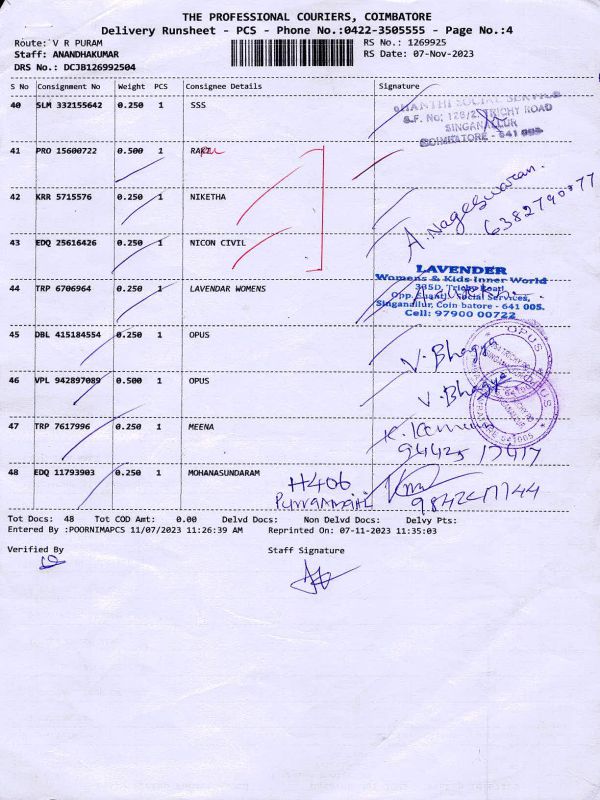 THE PROFESSIONAL COURIERS, COIMBATORE
Delivery Runsheet - PCS - Phone No.:0422-3505555 - Page No.:4
Route: V R PURAM RS No.: 1269925
Staff: ANANDHAKUMAR RS Date: 07-Nov-2023
DRS No.: DCJB126992504
S No Consignment No Weight PCS Consignee Details Signature
40 SLM 332155642 0.250 1 SSS
SHANTHI SOCIAL SERVICE
S.F. No: 128/2, TRICHY ROAD
SINGANALLUR
COIMBATORE - 641 005
41 PRO 15600722 0.500 1
42 KRR 5715576 0.250 1 NIKETHA
A. Nageswaran.
43 EDQ 25616426 0.250 1 NICON CIVIL
44 TRP 6706964 0.250 1 LAVENDAR WOMENS
LAVENDER
Womens & Kids Inner World
335D, Trichy Road,
Opp. Shanthi Social Services,
Singanallur, Coimbatore - 641 005.
Cell: 97900 00722
45 DBL 415184554 0.250 1 OPUS V. Bhagya
OPUS
46 VPL 942897089 0.500 1 OPUS V. Bhagya
OPUS
47 TRP 7617996 0.250 1 MEENA
48 EDQ 11793903 0.250 1 MOHANASUNDARAM
H406
Tot Docs: 48 Tot COD Amt: 0.00 Delvd Docs: Non Delvd Docs: Delvy Pts:
Entered By :POORNIMAPCS 11/07/2023 11:26:39 AM Reprinted On: 07-11-2023 11:35:03
Verified By Staff Signature